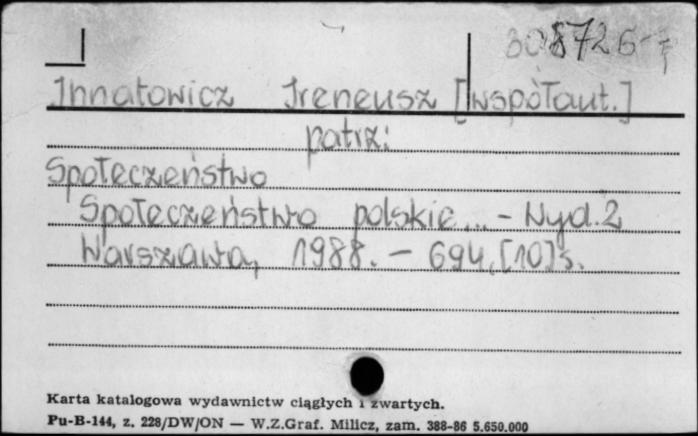 Ihnatowicz Ireneusz [współaut.]
patrz:
Społeczeństwo
Społeczeństwo polskie... - Wyd. 2
Warszawa, 1988. - 694, [10] s.
Karta katalogowa wydawnictw ciągłych i zwartych.
Pu-B-144, z. 228/DW/ON — W.Z.Graf. Milicz, zam. 388-86 5.650.000